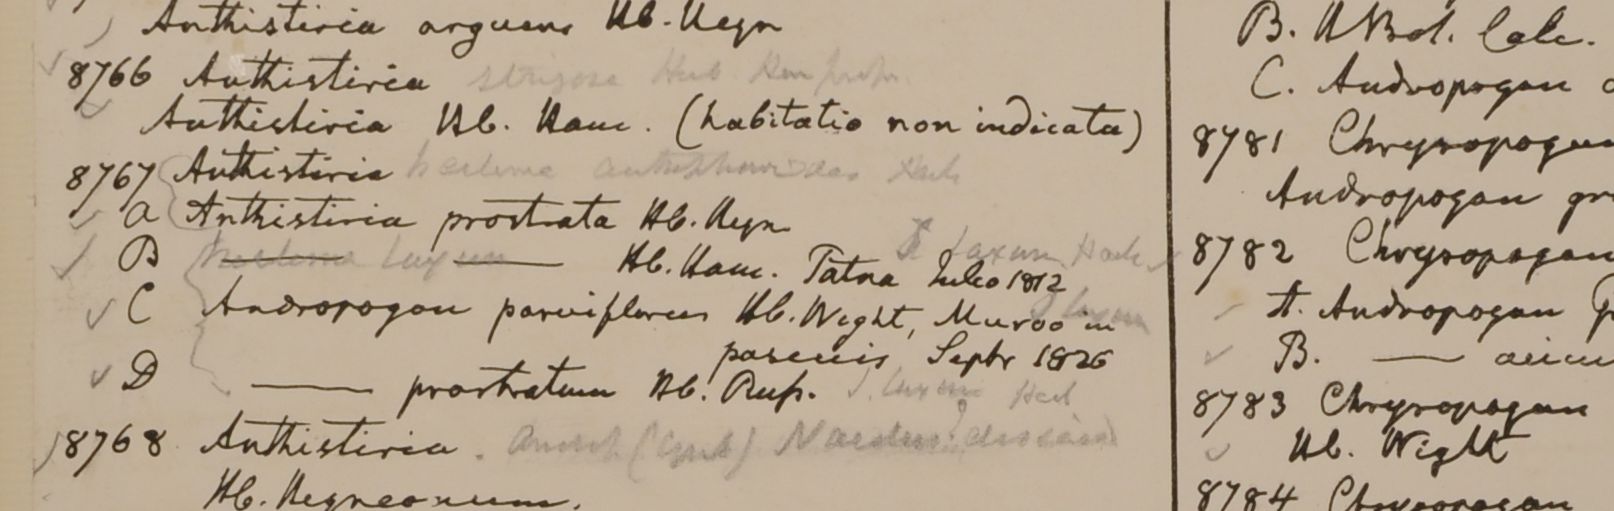 Anthistiria arguens Hb. Heyn
8766 Anthistiria strigosa Herb. Ham
Anthistiria Hb. Ham. (habitatio non indicata)
8767 Anthistiria
a Anthistiria prostrata Hb. Heyn
B Hb. Ham. Patna Julio 1812
laxum Hack
C Andropogon parviflorus Hb. Wight, Muroo in
pascuis Septr 1826
D —— prostratum Hb. Rup. I. laxum Hack
8768 Anthistiria.
Hb. Heyneanum.
B. HBot. Calc.
C. Andropogon
8781 Chrysopogon
Andropogon gr
8782 Chrysopogon
A. Andropogon
B. —— acicu
8783 Chrysopogon
Hb. Wight
8784 Chrysopogon